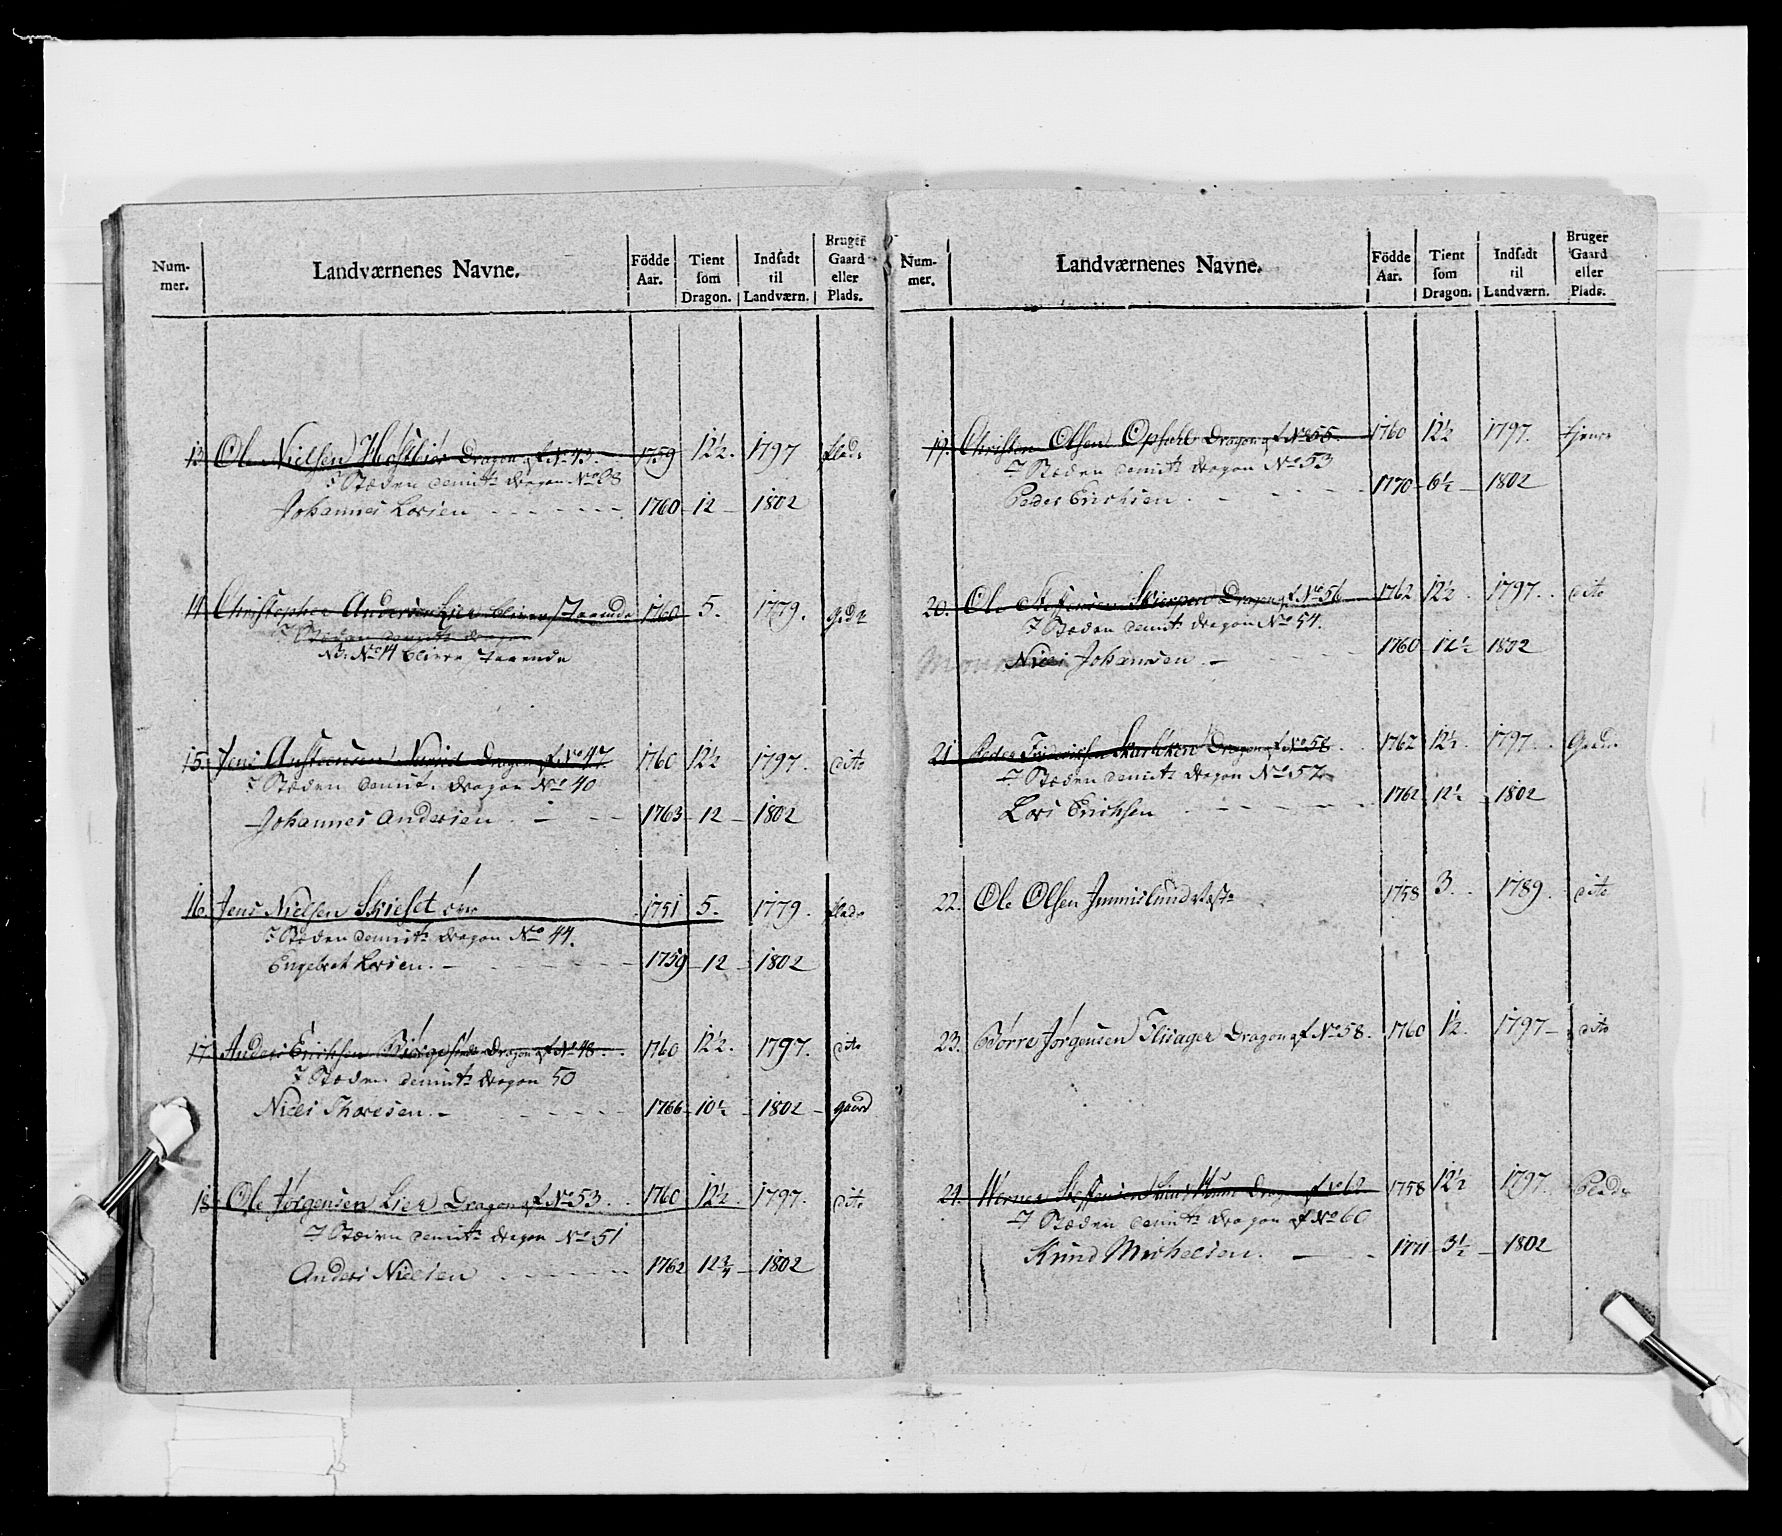 Num-
mer.
Landværnenes Navne.
Födde
Aar.
Tient
som
Dragon.
Indsadt
til
Landværn.
Bruger
Gaard
eller
Plads.
13 Ole Nielsen Dragon af No 43. 1759 12½. 1797 Plads
I Stæden demit: Dragon No 38
Johannes Larsen 1760 12 1802
14 Christopher Andersen Lier bliver staaende 1760 5. 1779. Gods
I Stæden demit: Dragon
NB: No 14 bliver staaende
15. Jens Dragon af No 47. 1760 12½ 1797. dito
I Stæden demit. Dragon No 40
Johannes Andersen 1763 12 1802
16 Jens Nielsen Skieset 1751 5. 1779. Plads
I Stæden demit: Dragon No 44.
Engebret Larsen. 1759 12 1802
17 Anders Erichsen Dragon af No 48. 1760 12½. 1797. dito
I Stæden demit: Dragon 50
Niels Thoresen. 1766 10½ 1802 gaard
18 Ole Jørgensen Lier Dragon af No 53. 1760 12½. 1797. dito
I Stæden demit: Dragon No 51
Anders Nielsen 1762 12¾ 1802
Num-
mer.
Landværnenes Navne.
Födde
Aar.
Tient
som
Dragon.
Indsadt
til
Landværn.
Bruger
Gaard
eller
Plads.
19. Christen Olsen Opsahl Dragon af No 55. 1760 12½ 1797. tjener
I Stæden demit: Dragon No 53
Peder Erichsen 1770 6½ 1802
20. Ole Dragon af No 56 1762 12½ 1797. dito
I Stæden demit: Dragon No 54.
Niels Johannsen 1760 12½ 1802
21 Peder Friderichsen Dragon af No 58 1762 12½. 1797.
I Stæden demit: Dragon No 57
Lars Erichsen 1762 12½ 1802
22. Ole Olsen Jmmislund 1758 3. 1789. dito
23. Børre Jørgensen Dragon af No 58. 1760 1½. 1797 dito
24. Werner Steffensen af No 62 1758 12½ 1797. Plads
I Stæden demit: Dragon af No 60
Knud Michelsen. 1771 3½ 1802